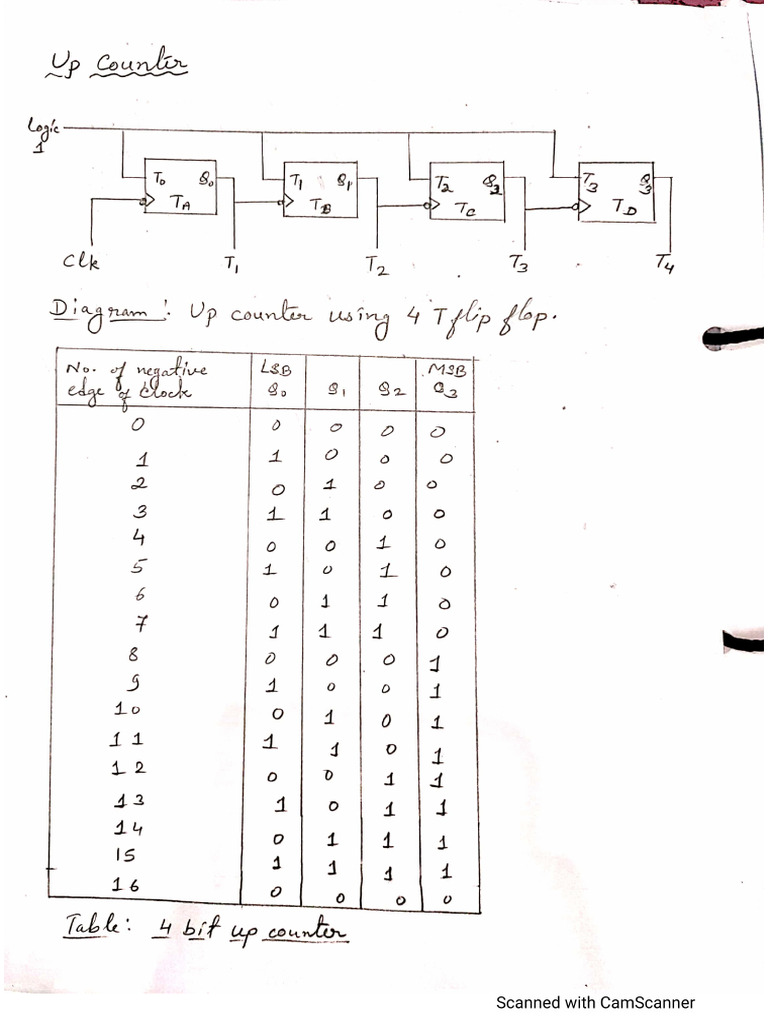 Up Counter
Logic
1
T0 Q0 T1 Q1 T2 Q2 T3 Q3
TA TB TC TD
Clk T1 T2 T3 T4
Diagram: Up counter using 4 T flip flop.
No. of negative LSB MSB
edge of clock Q0 Q1 Q2 Q3
0 0 0 0 0
1 1 0 0 0
2 0 1 0 0
3 1 1 0 0
4 0 0 1 0
5 1 0 1 0
6 0 1 1 0
7 1 1 1 0
8 0 0 0 1
9 1 0 0 1
10 0 1 0 1
11 1 1 0 1
12 0 0 1 1
13 1 0 1 1
14 0 1 1 1
15 1 1 1 1
16 0 0 0 0
Table: 4 bit up counter
Scanned with CamScanner